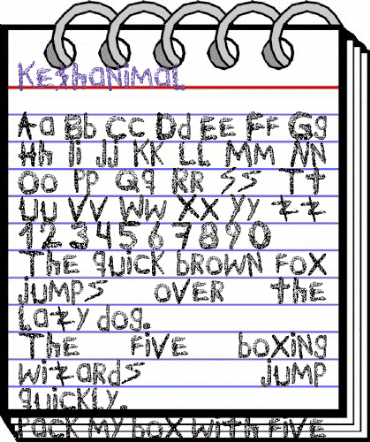 Aa Bb Cc Dd EE FF Gg
Hh Ii Jj KK LL MM NN
Oo PP Qq RR SS Tt
UU VV WW XX YY ZZ
1234567890
The quick brown fox
jumps over the
lazy dog.
The five boxing
wizards jump
quickly.
Pack my box with five